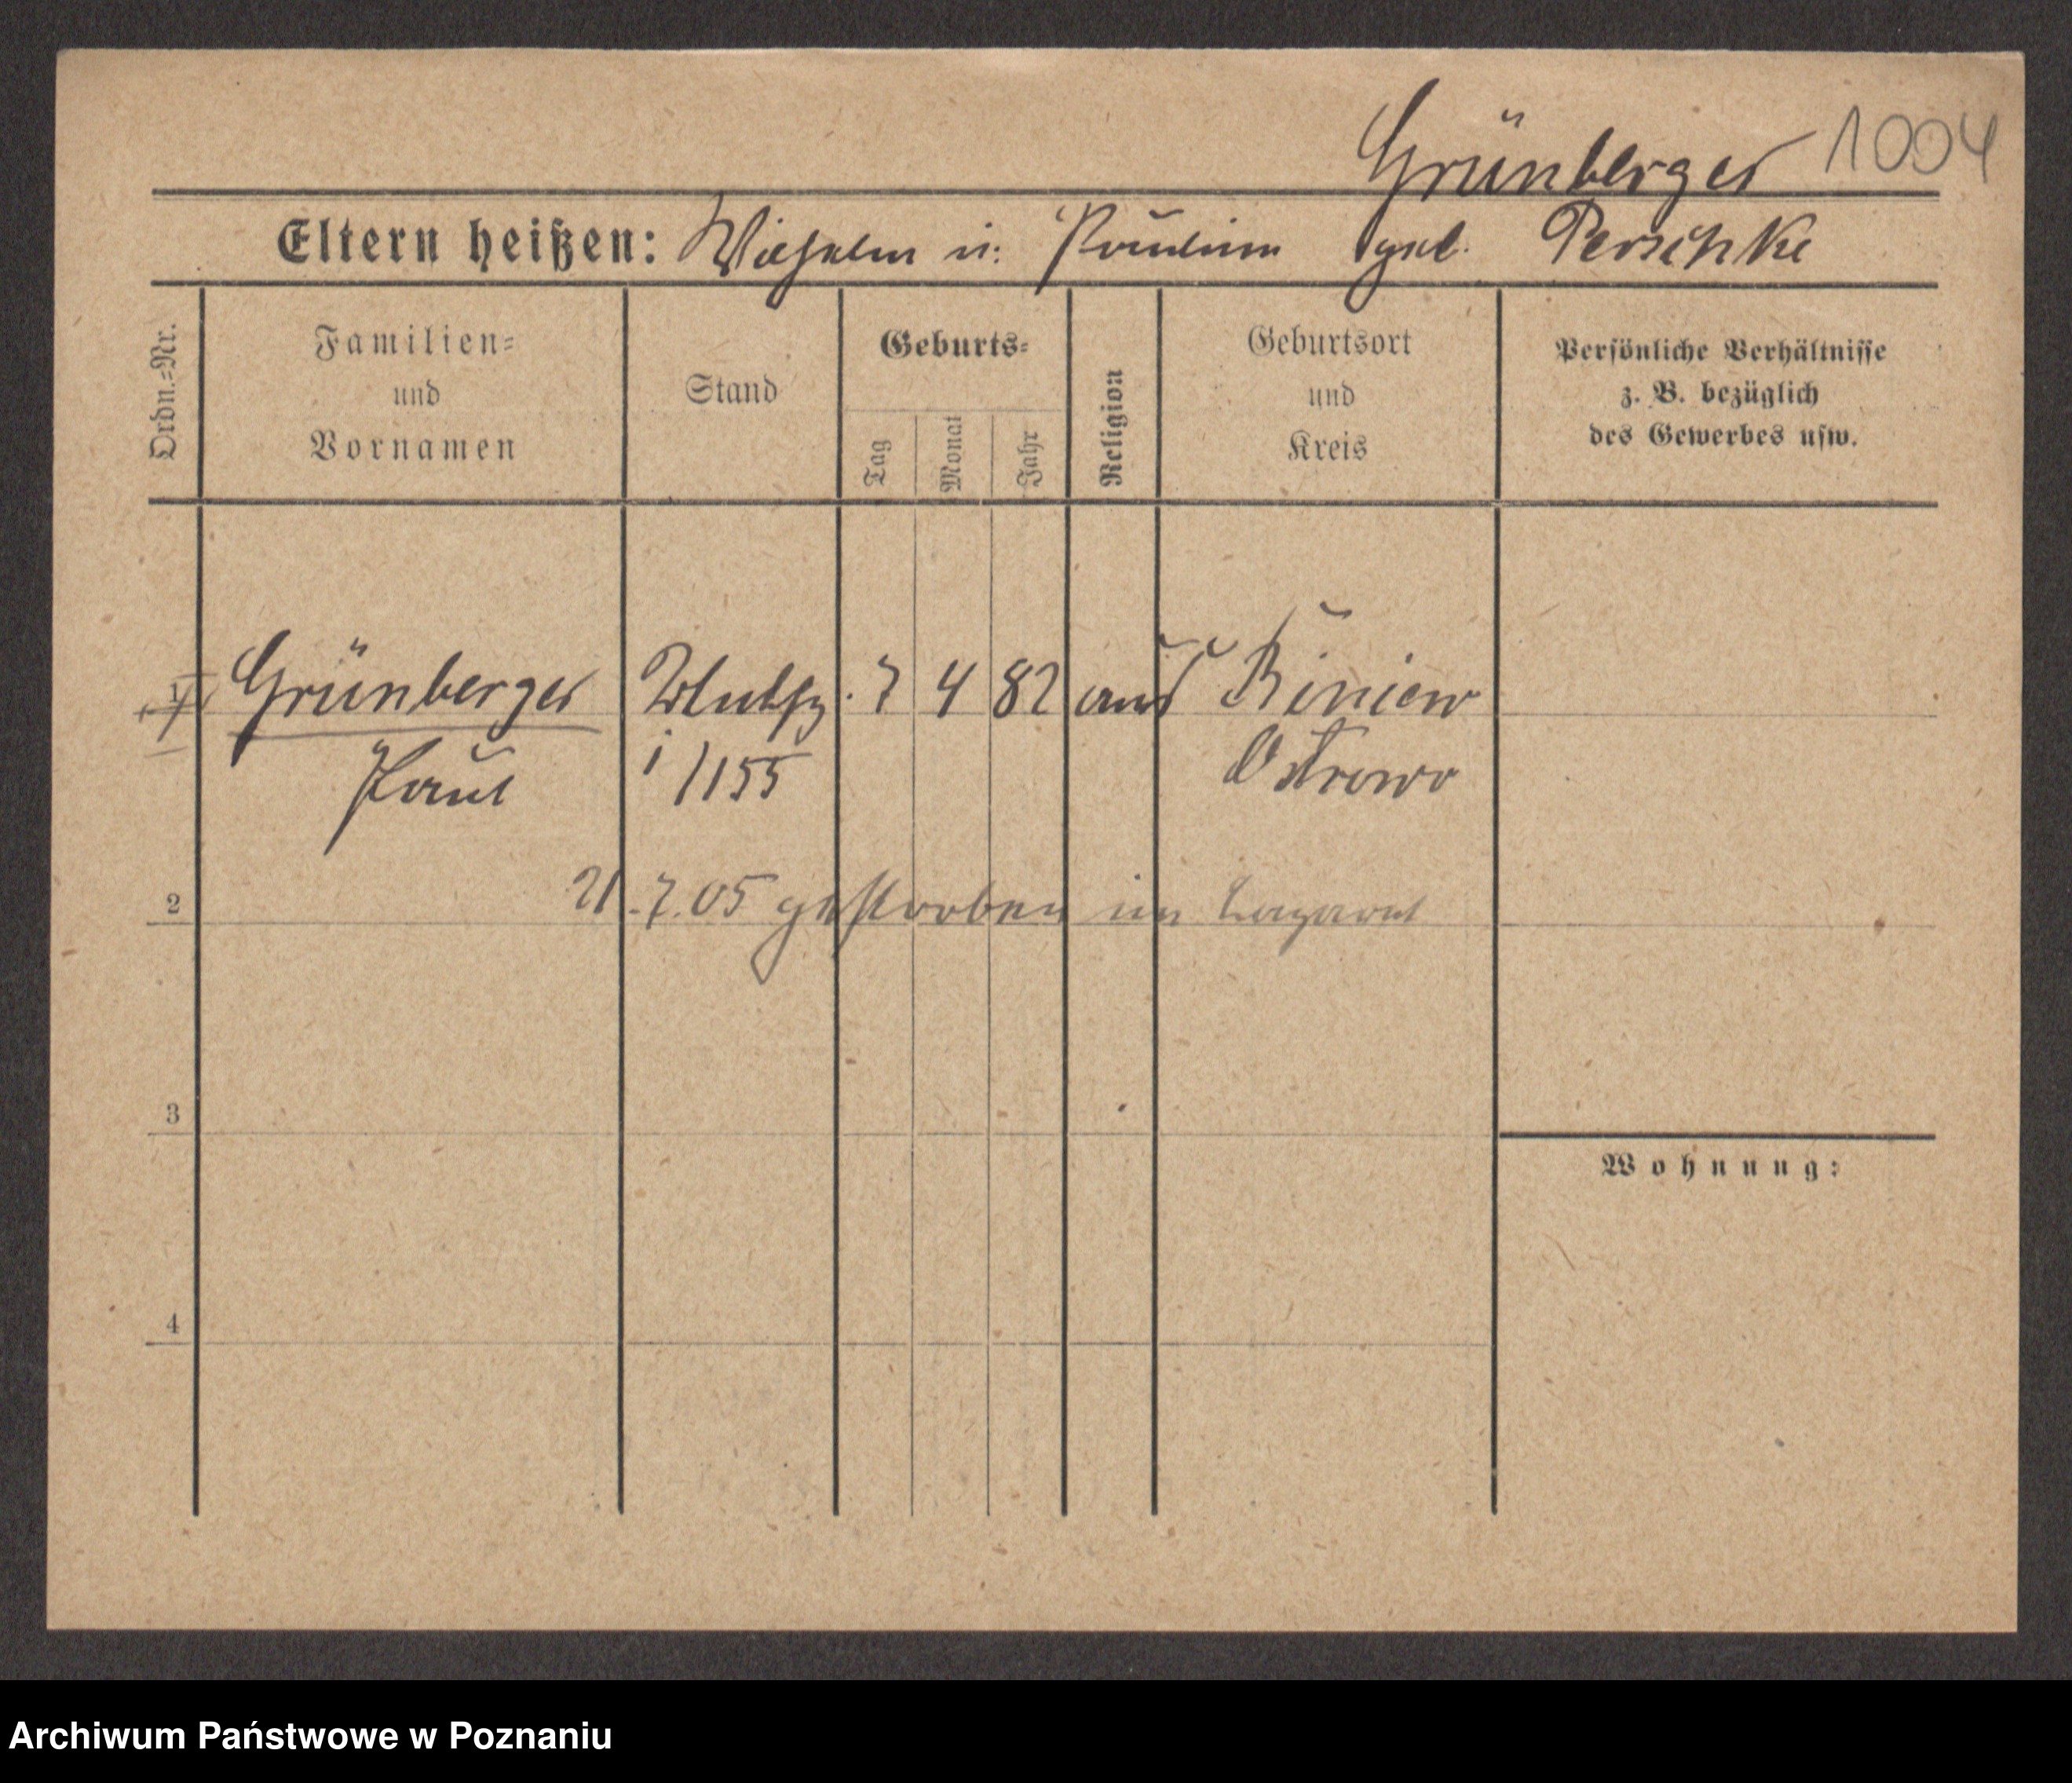 Grünberger 1004
Eltern heißen: Wilhelm u. Pauline geb. Perschke
Ordn.=Nr.
Familien=
und
Vornamen
Stand
Geburts=
Tag
Monat
Jahr
Religion
Geburtsort
und
Kreis
Persönliche Verhältnisse
z. B. bezüglich
des Gewerbes usw.
1 Grünberger 7 4 82 Biniew
Paul i/155 Ostrowo
2 21.7.05 gestorben im Lazarett
3
Wohnung:
4
Archiwum Państwowe w Poznaniu